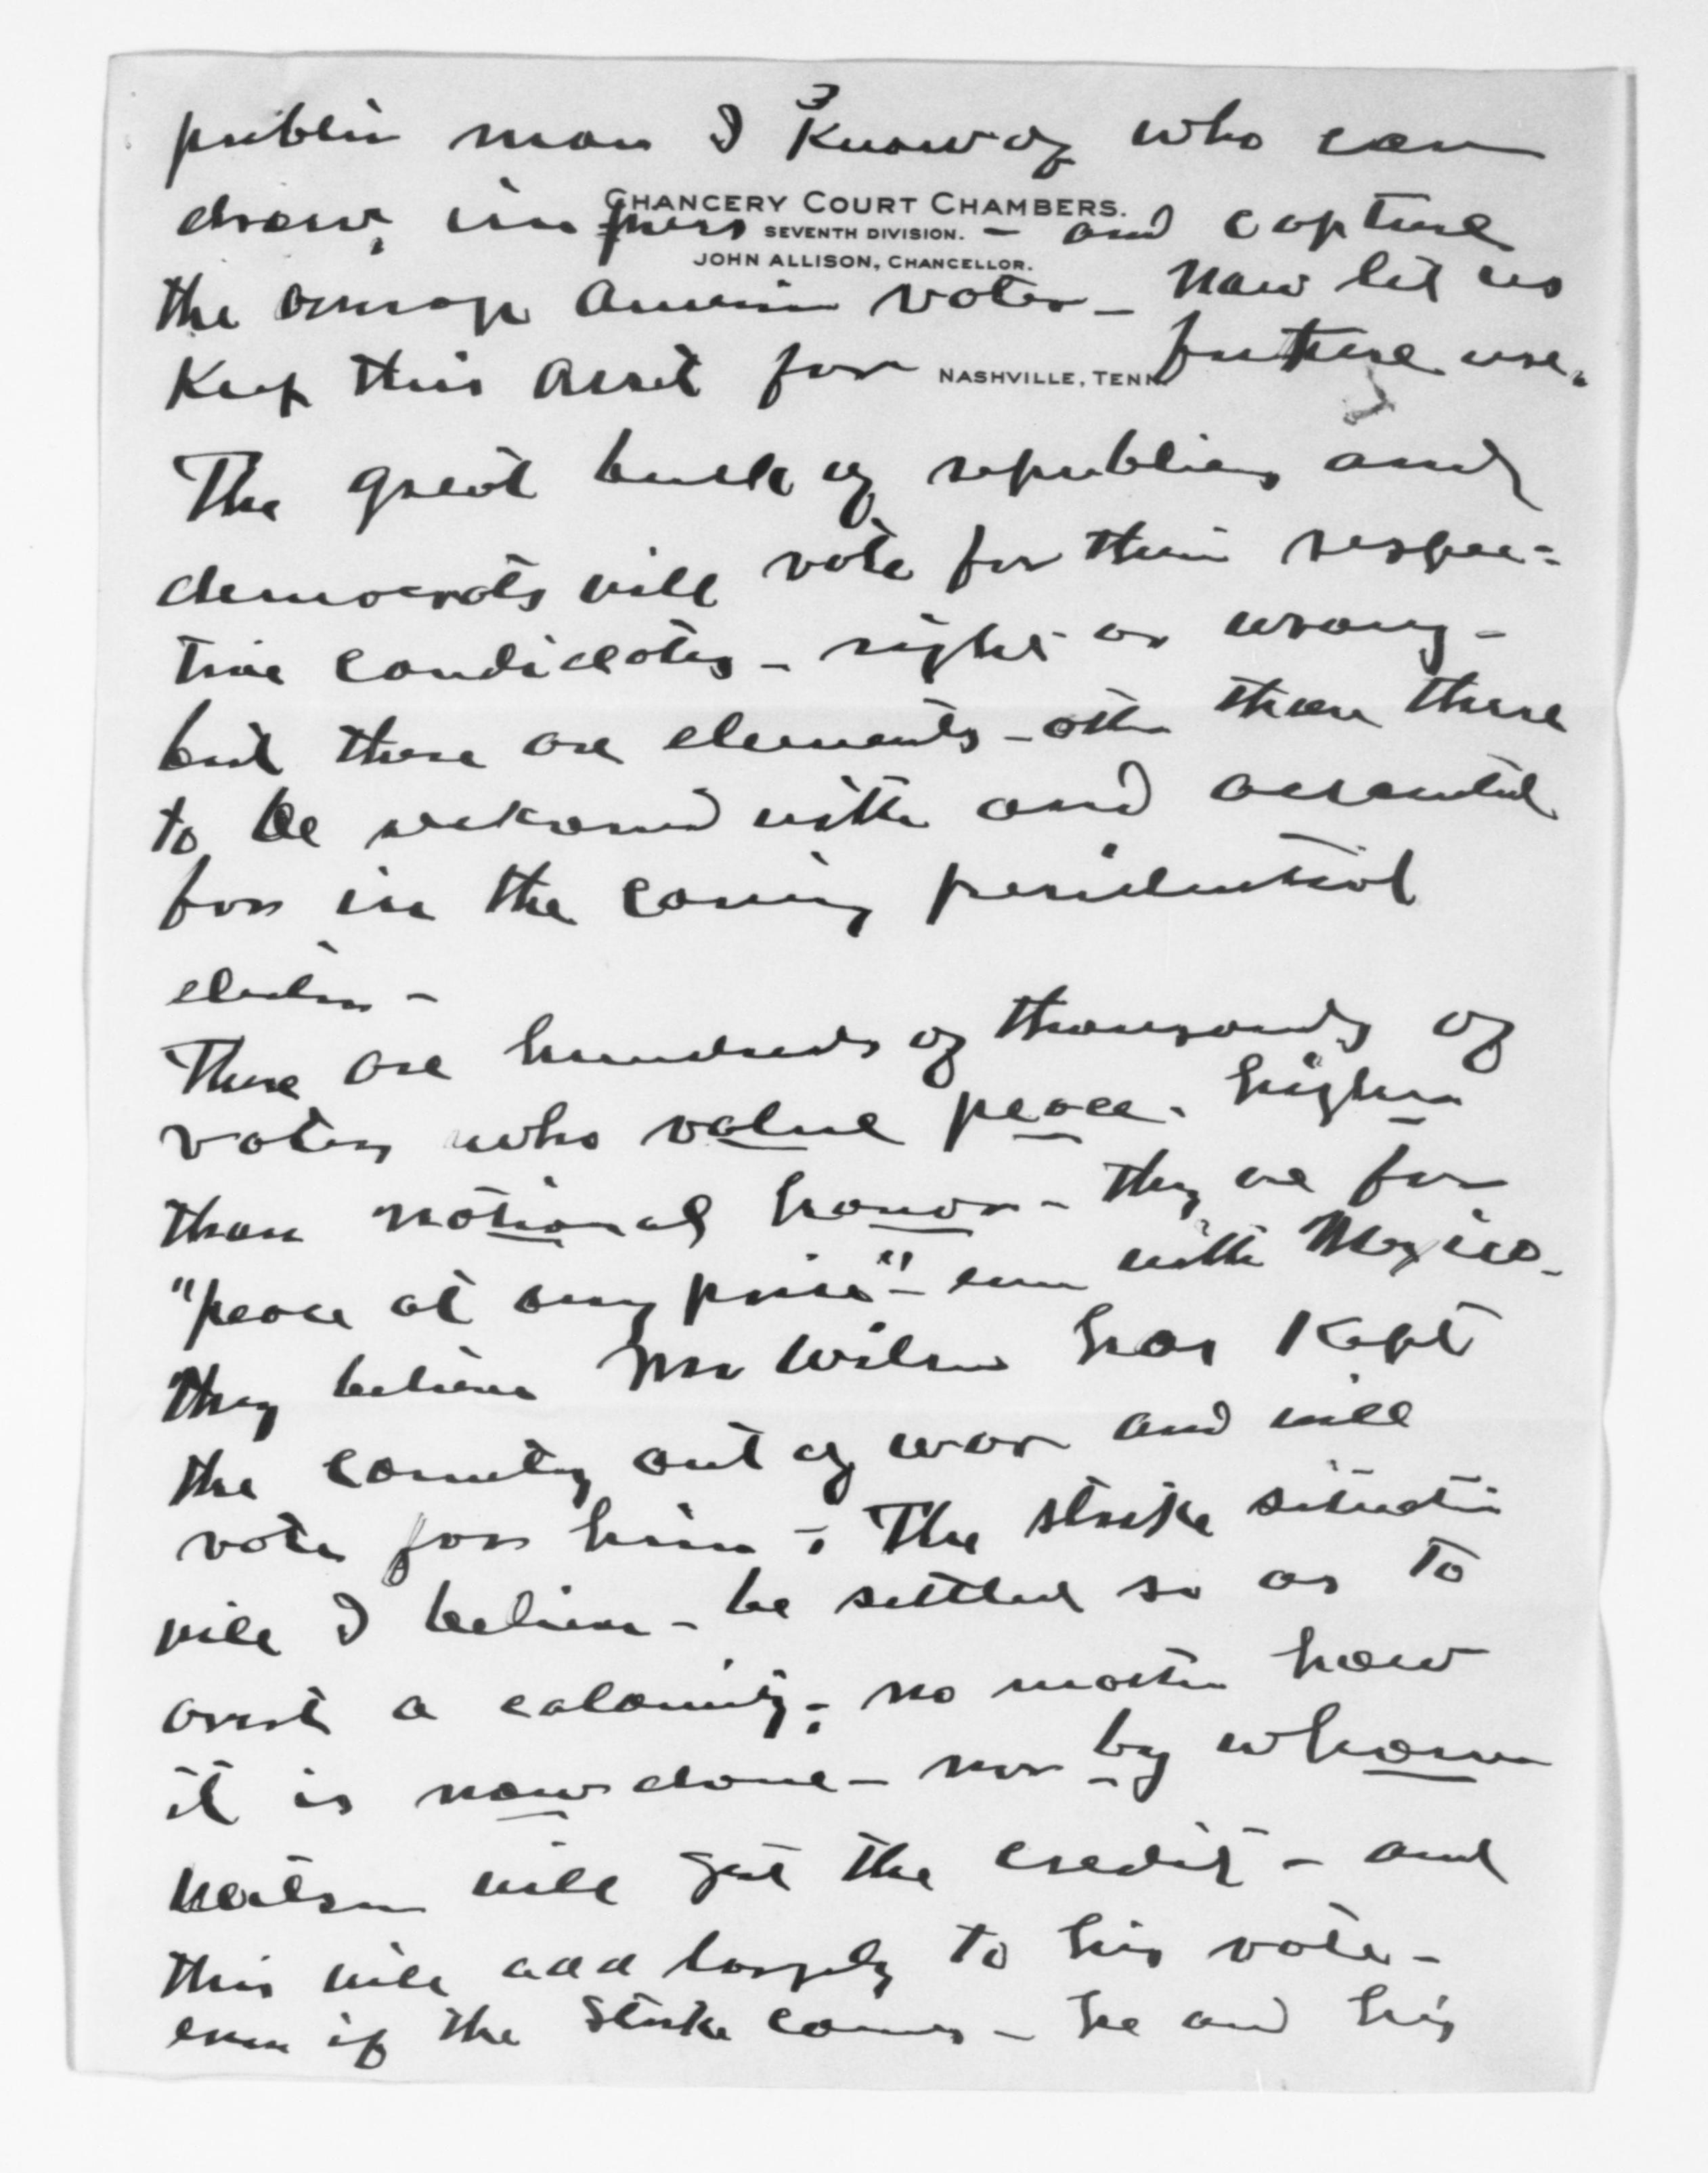 3
public man I know of who can
CHANCERY COURT CHAMBERS.
SEVENTH DIVISION.
JOHN ALLISON, CHANCELLOR.
draw, impress - and capture
the average American voter - Now let us
NASHVILLE, TENN
Keep this asset for future use.
The great bulk of republicans and
democrats will vote for their respec=
tive candidates - right or wrong -
but there are elements - other than these
to be reckoned with and accounted
for in the coming presidential
election -
There are hundreds of thousands of
voters who value peace. higher
than national honor - they are for
"peace at any price" - even with Mexico -
they believe Mr Wilson has Kept
the country out of war and will
vote for him - The strike situation
will I believe - be settled so as to
avert a calamity; no matter how
it is now done - nor by whom
Wilson will get the credit - and
this will add largely to his vote -
even if the strike comes - he and his